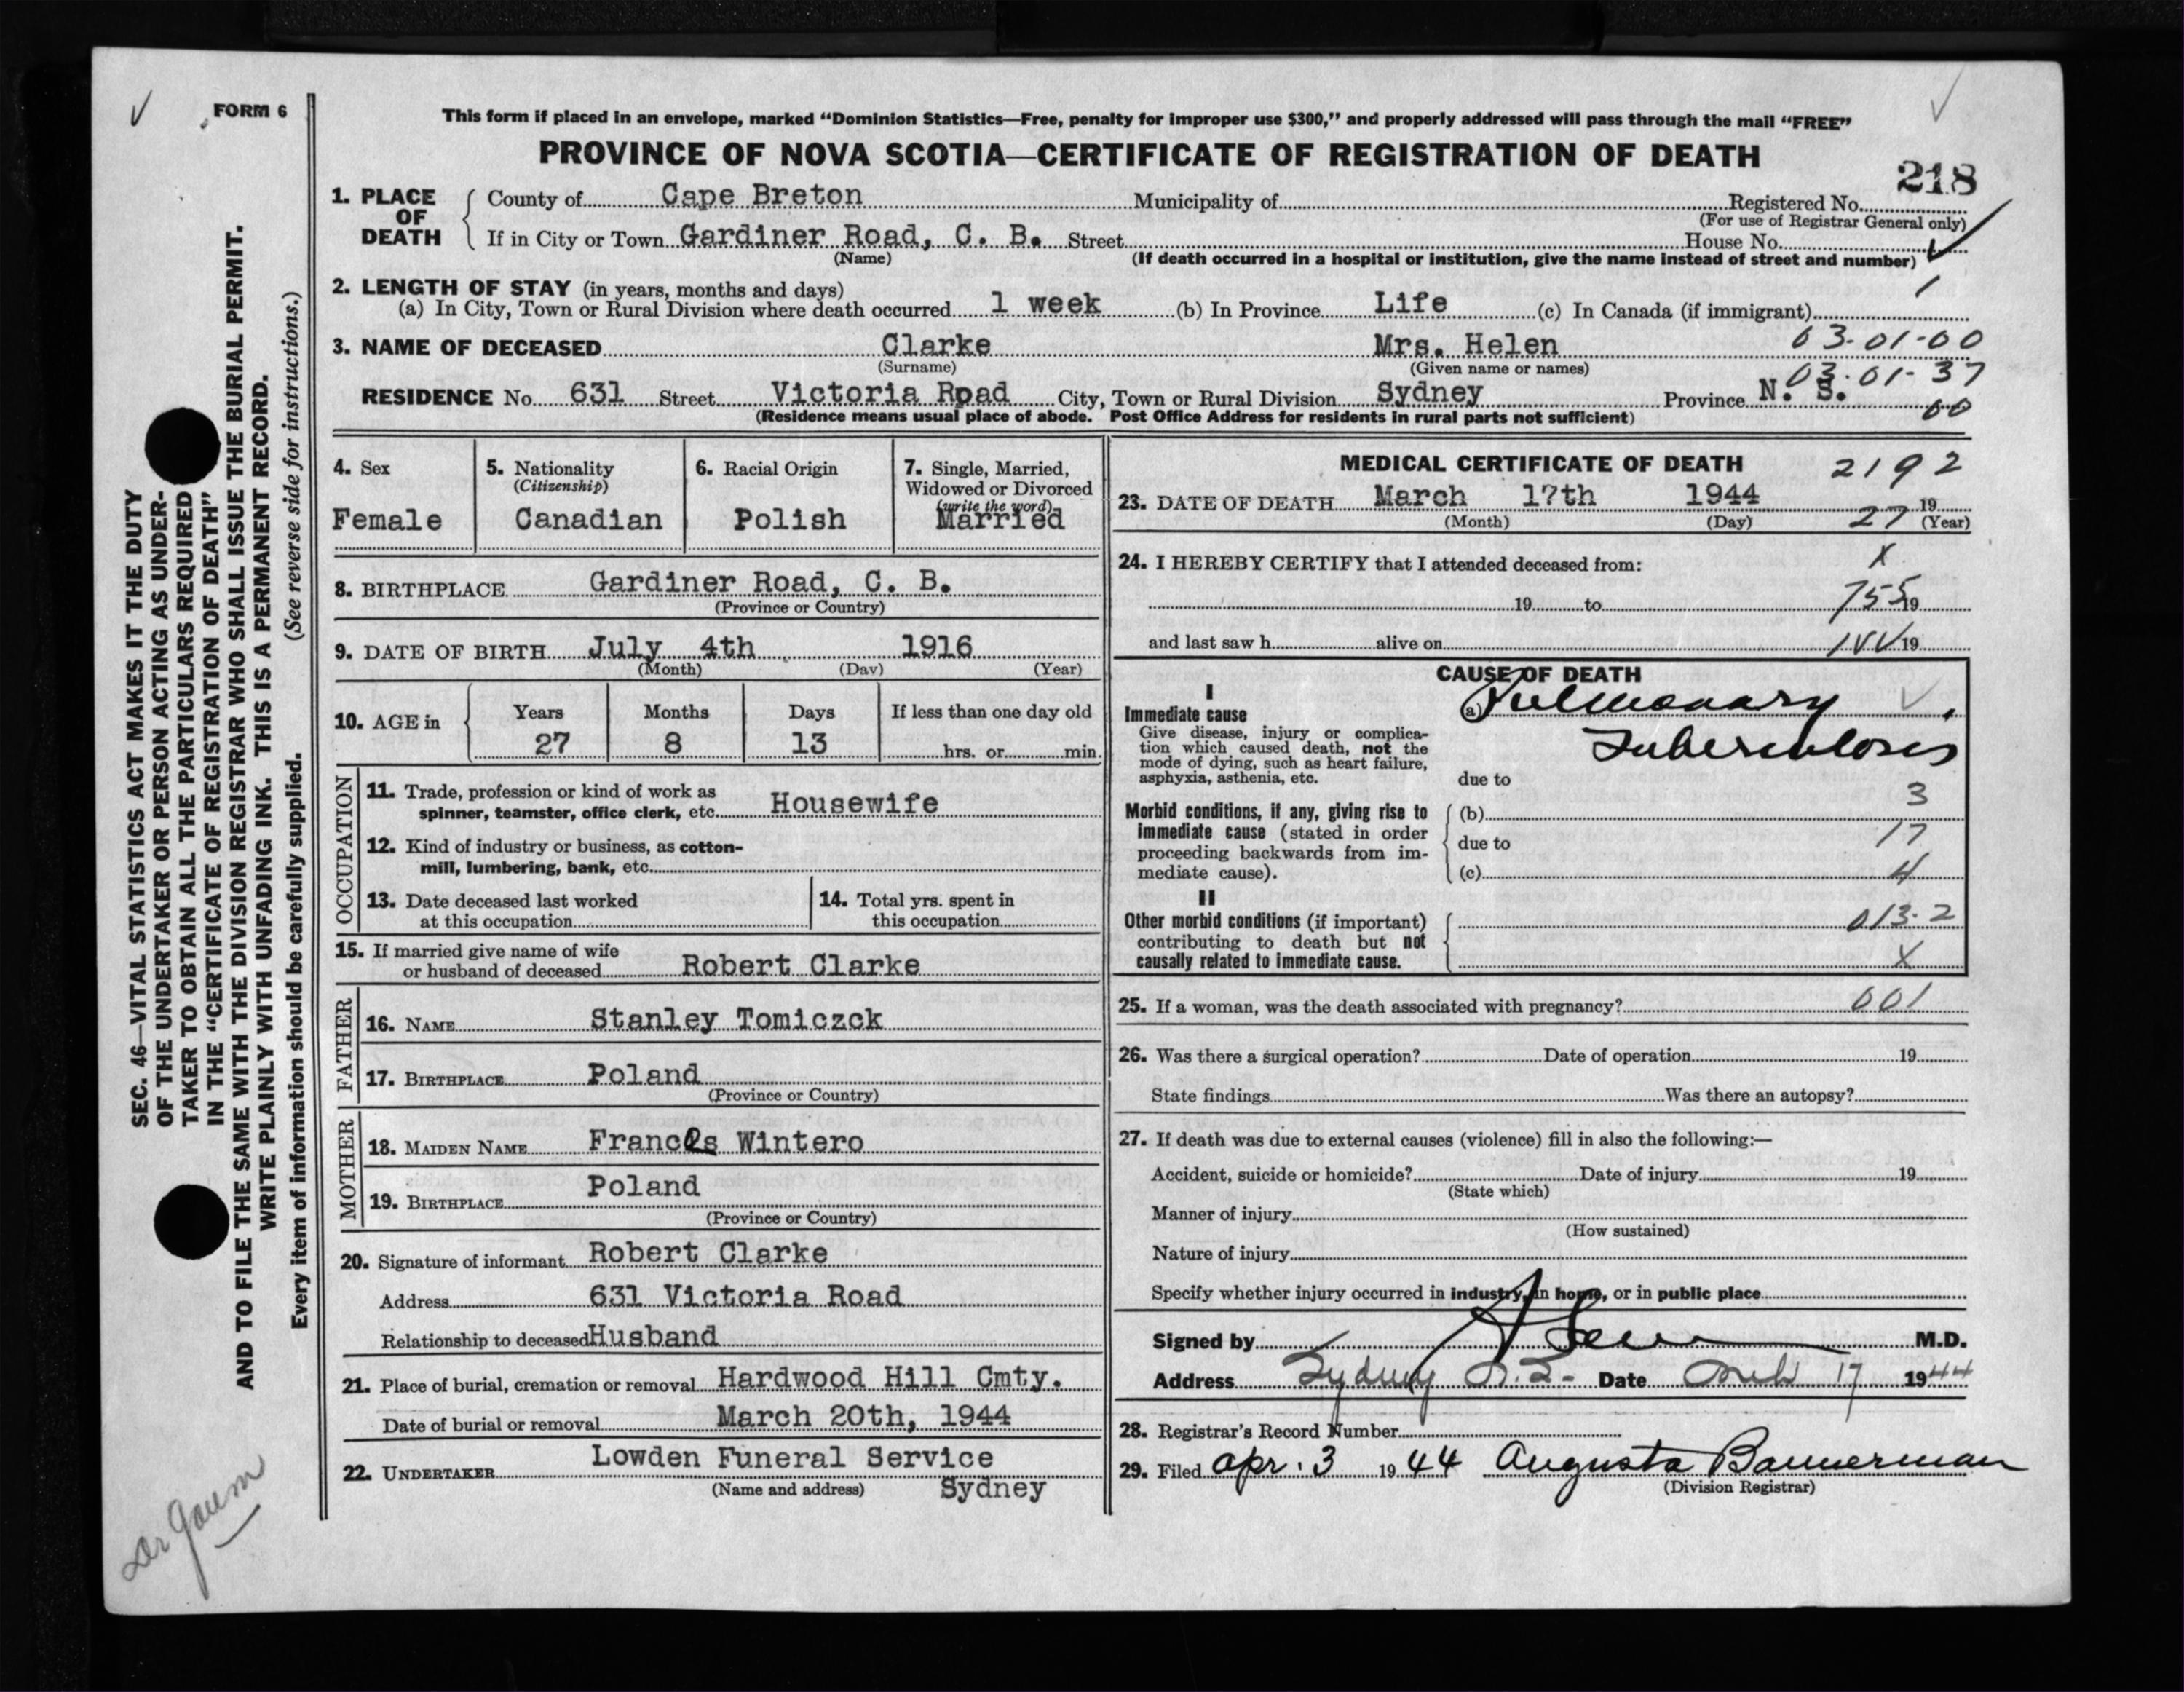 FORM 6
This form if placed in an envelope, marked “Dominion Statistics—Free, penalty for improper use $300,” and properly addressed will pass through the mail “FREE”
PROVINCE OF NOVA SCOTIA—CERTIFICATE OF REGISTRATION OF DEATH
218
1. PLACE OF DEATH
County of Cape Breton Municipality of Registered No.
(For use of Registrar General only)
If in City or Town Gardiner Road, C. B. Street House No.
(Name) (If death occurred in a hospital or institution, give the name instead of street and number)
2. LENGTH OF STAY (in years, months and days)
1
(a) In City, Town or Rural Division where death occurred 1 week (b) In Province Life (c) In Canada (if immigrant)
3. NAME OF DECEASED Clarke Mrs. Helen 03-01-00
(Surname) (Given name or names)
03-01-37
RESIDENCE No. 631 Street Victoria Road City, Town or Rural Division Sydney Province N. S.
00
(Residence means usual place of abode. Post Office Address for residents in rural parts not sufficient)
4. Sex
Female
5. Nationality
(Citizenship)
Canadian
6. Racial Origin
Polish
7. Single, Married,
Widowed or Divorced
(write the word)
Married
8. BIRTHPLACE Gardiner Road, C. B.
(Province or Country)
9. DATE OF BIRTH July 4th 1916
(Month) (Day) (Year)
10. AGE in
Years Months Days If less than one day old
27 8 13 hrs. or min.
OCCUPATION
11. Trade, profession or kind of work as
spinner, teamster, office clerk, etc. Housewife
12. Kind of industry or business, as cotton-
mill, lumbering, bank, etc.
13. Date deceased last worked
at this occupation
14. Total yrs. spent in
this occupation
15. If married give name of wife
or husband of deceased Robert Clarke
FATHER
16. NAME Stanley Tomiczck
17. BIRTHPLACE Poland
(Province or Country)
MOTHER
18. MAIDEN NAME Frances Wintero
19. BIRTHPLACE Poland
(Province or Country)
20. Signature of informant Robert Clarke
Address 631 Victoria Road
Relationship to deceased Husband
21. Place of burial, cremation or removal Hardwood Hill Cmty.
Date of burial or removal March 20th, 1944
22. UNDERTAKER Lowden Funeral Service
(Name and address) Sydney
MEDICAL CERTIFICATE OF DEATH 2192
23. DATE OF DEATH March 17th 1944 19
(Month) (Day) 27 (Year)
24. I HEREBY CERTIFY that I attended deceased from: X
19 to 755 19
and last saw h alive on 19
CAUSE OF DEATH
I
Immediate cause
Give disease, injury or complica-
tion which caused death, not the
mode of dying, such as heart failure,
asphyxia, asthenia, etc.
(a) Pulmonary
Tuberculosis
due to
Morbid conditions, if any, giving rise to
immediate cause (stated in order
proceeding backwards from im-
mediate cause).
(b) 3
due to 17
(c) 4
II
Other morbid conditions (if important)
contributing to death but not
causally related to immediate cause.
013-2
X
25. If a woman, was the death associated with pregnancy? 001
26. Was there a surgical operation? Date of operation 19
State findings Was there an autopsy?
27. If death was due to external causes (violence) fill in also the following:—
Accident, suicide or homicide? Date of injury 19
(State which)
Manner of injury
(How sustained)
Nature of injury
Specify whether injury occurred in industry, in home, or in public place
Signed by M.D.
Address Sydney N.S. Date March 17 1944
28. Registrar's Record Number
29. Filed Apr. 3 1944 Augusta Bannerman
(Division Registrar)
SEC. 46—VITAL STATISTICS ACT MAKES IT THE DUTY
OF THE UNDERTAKER OR PERSON ACTING AS UNDER-
TAKER TO OBTAIN ALL THE PARTICULARS REQUIRED
IN THE “CERTIFICATE OF REGISTRATION OF DEATH”
AND TO FILE THE SAME WITH THE DIVISION REGISTRAR WHO SHALL ISSUE THE BURIAL PERMIT.
WRITE PLAINLY WITH UNFADING INK. THIS IS A PERMANENT RECORD.
Every item of information should be carefully supplied. (See reverse side for instructions.)